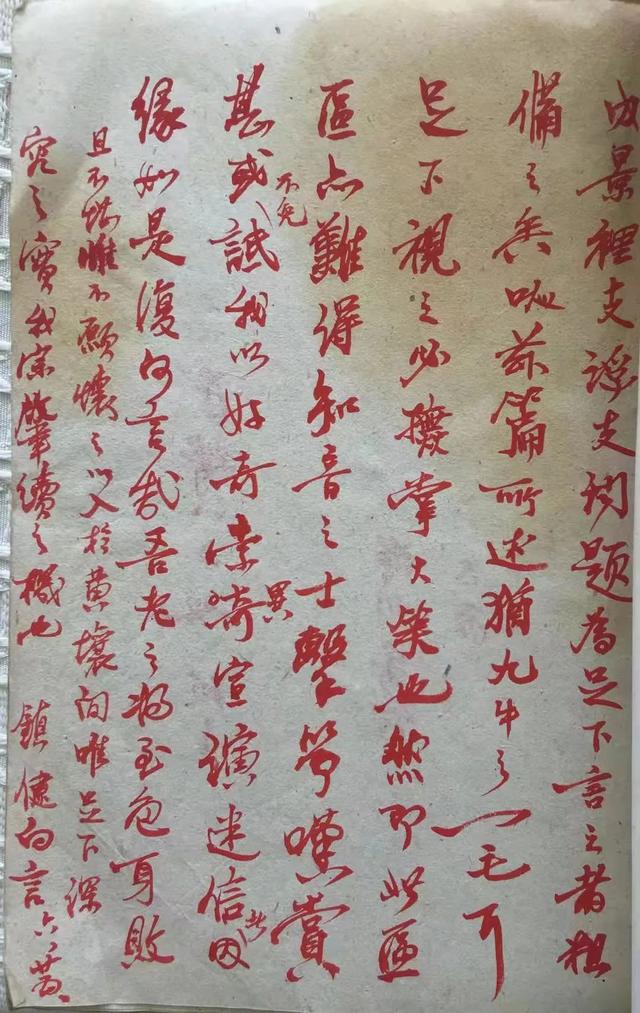 景裡支謠支詞題為足下言之者粗
備之矣唯茲篇所述猶九牛之一毛耳
足下視之必撥掌大笑也然即此區
區亦難得知音之士擊節嘆賞
甚或不免試我以好奇索異宣演迷信因此
緣如是復何言哉吾老之將至危身敗
且不惜惟不願懷之以入於黃壤間唯足下深
究之實我宗肇續之機也 鎮健白言六、黃